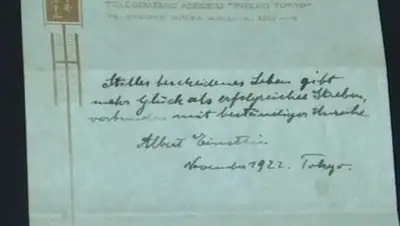 TELEGRAPHIC ADDRESS "IMPEHO TOKYO"
Stilles bescheidenes Leben gibt
mehr Glück als erfolgreiches Streben,
verbunden mit beständiger Unruhe.
Albert Einstein
November 1922. Tokyo.